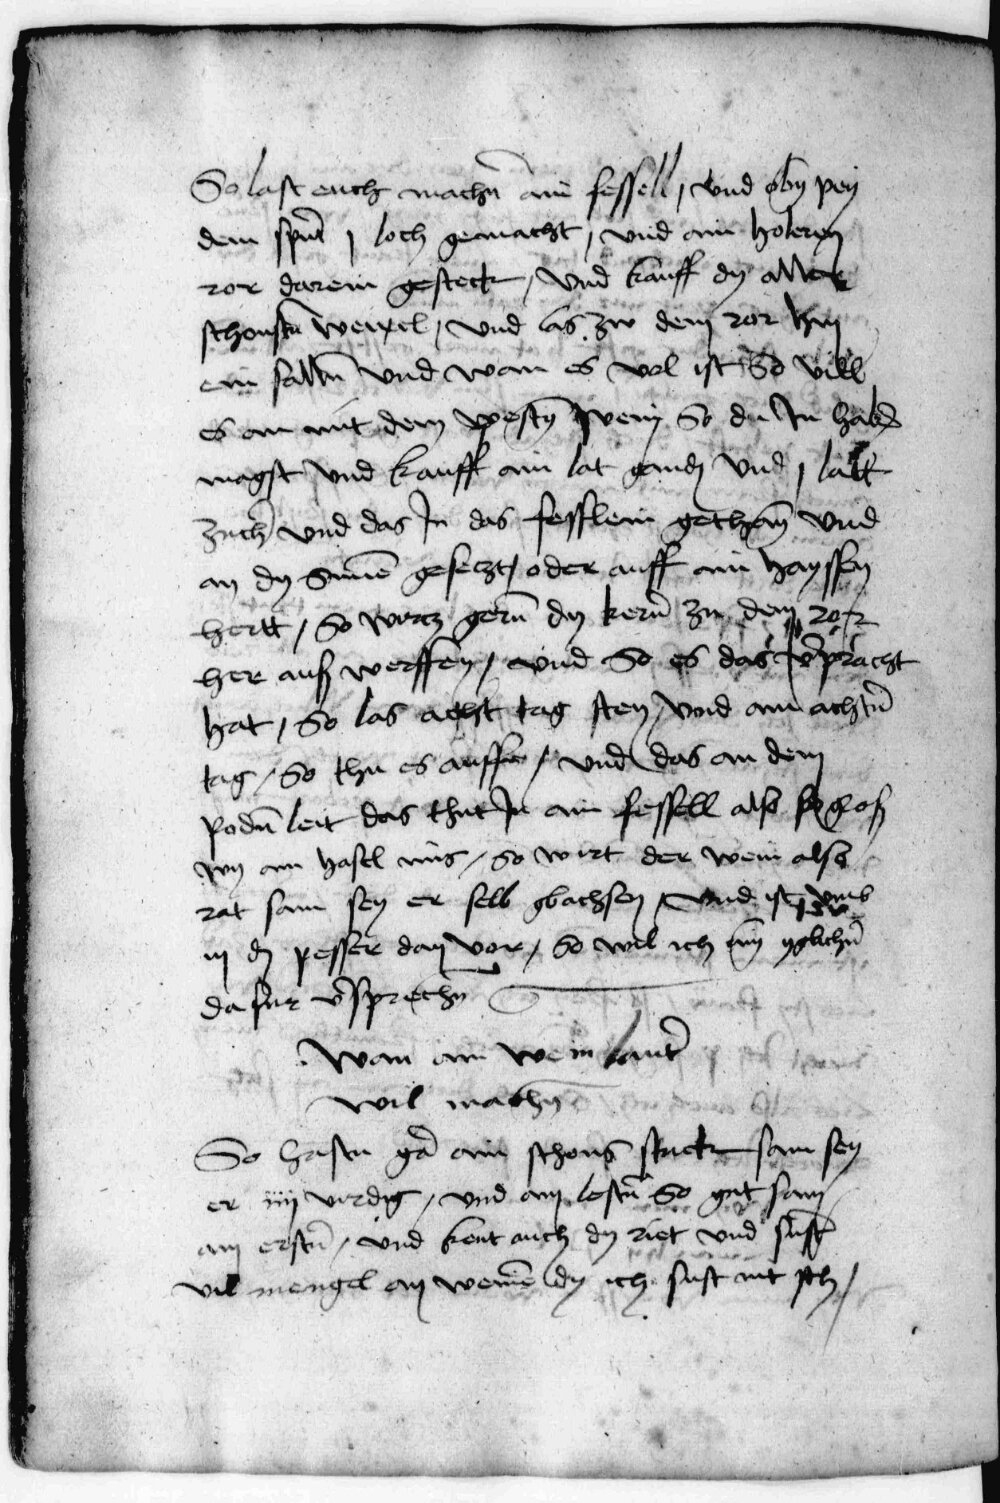 So last euch machn̄ ain fessell / vnd obn pey
dem spūt j loch gemacht / vnd ain holeren
ror darein gesteck / vnd kauff dy aller
schonstn̄ weixel / vnd las zw dem ror hin
ein falln̄ vnd wan es vol ist So vill
es an mit dem pestn̄ wein So du In habn̄
magst vnd kaufft ain lat vnd j latt
vnd das In das fesslein gethan vnd
an dy Sunnē gesetzt / oder auff ain hayssen
hertt / So gern̄ dy kern̄ zu dem ror
her aus werffen / vnd So es das v̄pracht
hat / So las acht tag sten vnd am achtn̄
tag / So thu es auff / vnd das an dem
podn̄ leit das thut In ain fessell also gros
wy ain hasel nus / So wirt der wein also
rat sam sey er selb gbachsen / vnd ist vmb
iij dͩ pesser dan vor / So wil ich ygklichn̄
dafur v̄sprechn̄
Wan ain wein laut̄
wil machn̄
So hastu ain schons stuck sam sey
er iiij virdig / vnd am lestn̄ So gut sam
am erstn̄ / vnd kent auch dy riet vnd sust
vil mengel an weinē dy ich sust nit /